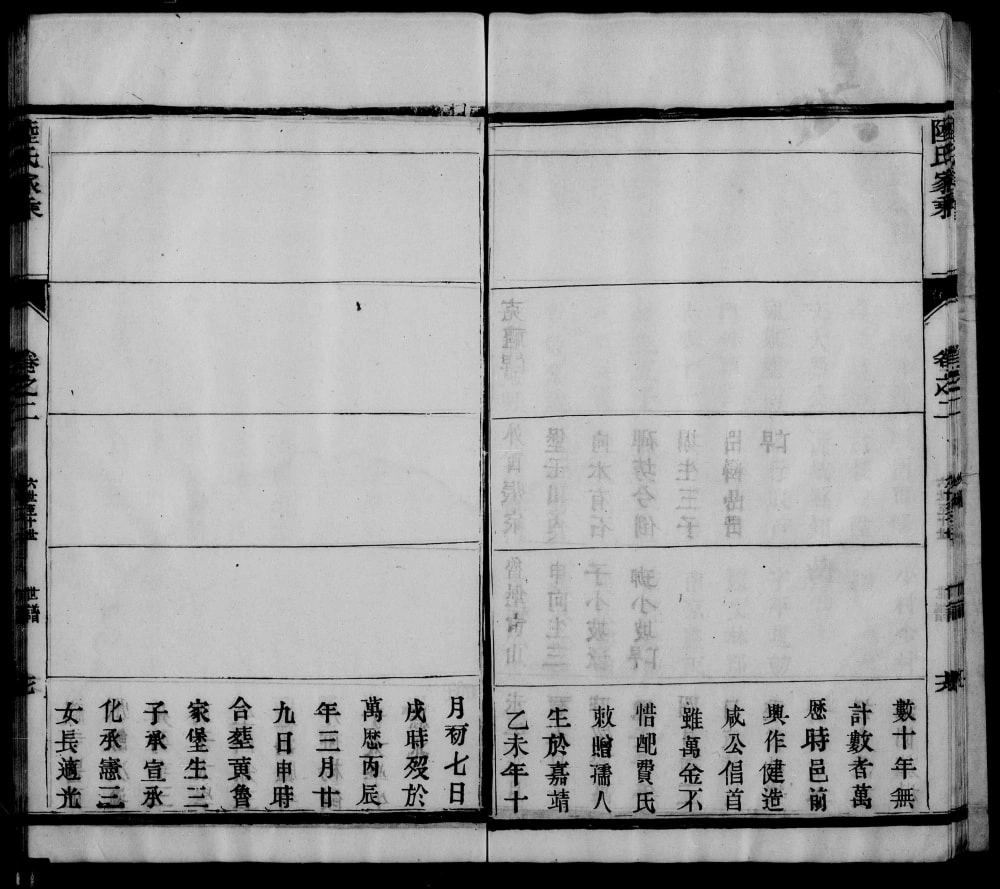 陸氏家乘
卷之二
數十年無
計數者萬
歷時邑前
興作健造
咸公倡首
雖萬金不
惜配費氏
敕贈孺人
生於嘉靖
乙未年十
月初七日
戌時歿於
萬歷丙辰
年三月廿
九日申時
合塟黃魯
家堡生三
子承宣承
化承憲三
女長適光
陸氏家乘
卷之二
六世至十世
世譜